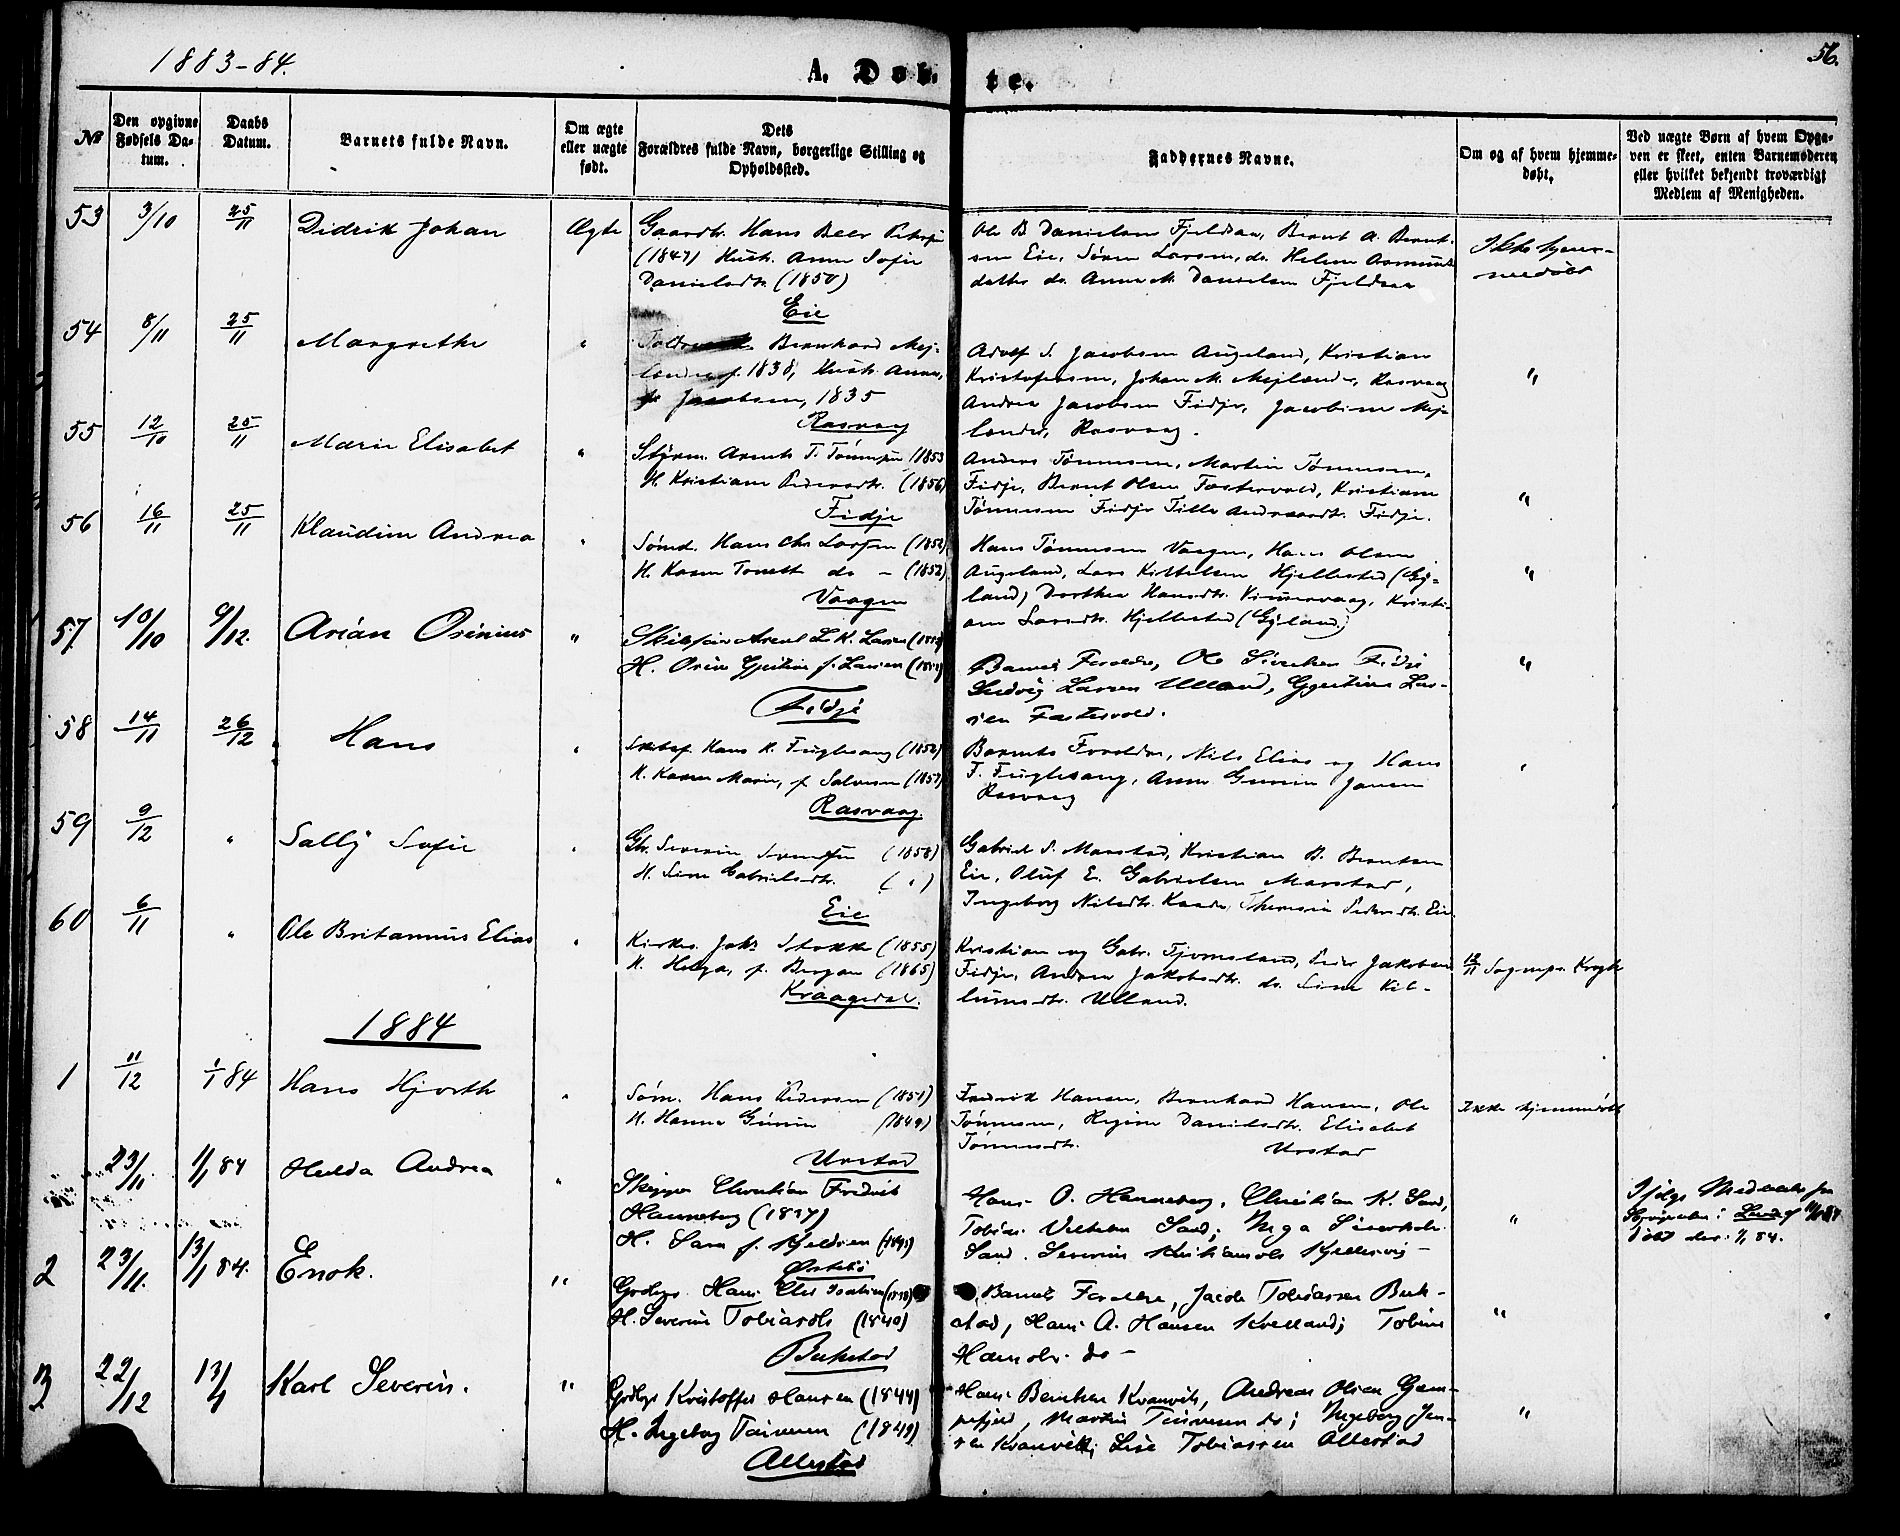 1883-84.
A. Døb-
te.
56.
No
Den opgivne Fødsels Da-tum.
Daabs Datum.
Barnets fulde Navn.
Om ægte eller uægte født.
Dets Forældres fulde Navn, borgerlige Stilling og Opholdssted.
Faddernes Navne.
Om og af hvem hjemme-døbt.
Ved uægte Børn af hvem Opga-ven er skeet, enten Barnemoderen eller hvilket bekjendt troværdigt Medlem af Menigheden.
53 3/10 25/11 Didrik Johan Ægte
Gaardbr. Hans Beer
(1847) Hustr. Anna Sofie
Danielsdtr. (1850)
Eie
Ole B Danielsen Fjeldsaa, Bernt A. Bernt-
sen Eie, Søren Larsen, do. Helene
datter do. Anne M. Danielsen Fjeldsaa
Ikke hjem-
medøbt
54 8/11 25/11 Margrethe "
Bernhard Mej-
lænder f. 1838, Hustr. Anna,
f. Jacobsen, 1835
Rasvaag
Adolf S. Jacobsen Augland, Kristian
Kristofersen, Johan M. Mejlænder, Rasvaag
Andrea Jacobsen Fidje, Jacobine Mej-
lænder, Rasvaag.
"
55 12/10 25/11 Marie Elisabet "
Styrm. Arent T. Tønnesen (1853
H. Kristiane Pedersdtr. (1856)
Fidje
Anders Tønnesen, Martin Tønnesen,
Fidje, Bernt Olsen Fastervold, Kristiane
Tønnesen Fidje Tille Andreasdtr. Fidje.
"
56 16/11 25/11 Klaudine Andrea "
Sømd. Hans Chr Larsen (1852)
H. Karen Tonette do - (1852)
Vaagen
Hans Tønnesen Vaagen, Hans Olsen
Augeland, Lars Kittelsen Hjellestad (Gy-
land) Dorthea Hansdtr. , Kristi-
ane Larsdtr. Hjellestad (Gyland.)
"
57 10/10 9/12. Arian Osinius "
Arent L K. Larsen
H. Osine Gjertine f. Larsen
Fidje
Barnets Forældre, Ole Fidje
Ludvig Larsen Ulland, Gjertine Lar-
sen Fastervold.
"
58 14/11 26/12 Hans "
Skibsf. Hans K. Fuglesang (1852)
H. Karen Marie, f. Salvesen (1857)
Rasvaag.
Barnets Forældre, Nils Elias og Hans
F. Fuglesang, Anne Gurine Jansen
Rasvaag
59 9/12 " Sally Sofie "
Gbr. Severin Svendsen (1858)
H. Sine Gabrielsdtr. ( " )
Eie
Gabriel S. Marstad, Kristian B. Berntsen
Eie, Oluf E. Gabrielsen Marstad,
Ingeborg Nilsdtr. Kaade, Theresia Pedersdtr. Eie
60 6/11 " Ole Britannus Elias "
Kirkes. Johs Stokke (1855)
H. Helga, f. Bergan (1865)
Kraagedal.
Kristian og Gabr. Tjomsland, Peder Jakobsen
Fidje, Andrea Jakobsdtr. do. Sine
Ulland.
12/11 Sognepr. Krogh
1884
1 11/12 1/1 84 Hans Hjorth "
Søm. Hans Pedersen (1851)
H. Hanna Gurine (1849)
Urstad
Fredrik Hansen, Bernhard Hansen, Ole
Tønnesen, Regine Danielsdtr. Elisabet
Tønnesdtr. Urstad
Ikke hjemmedøbt
23/11 1/1 84 Hulda Andrea "
Skipper Christian Fredrik
Hanneberg (1837)
H. Sara f. Kjeldsen
Hans O. Hanneberg, Christian K. Sand,
Tobias Vilhelm Sand; Inga
Sand. Severine Kristiansdtr Kjellervig -
"
Ifølge Meddelelse fra
døbt der 1/1 84.
2 23/11. 13/1 84. Enok. "
Hans Chr
H. Severine Tobiasdtr (1840)
Bukstad
Barnets Forældre, Jacob Tobiassen Buk-
stad, Hans A. Hansen Kvelland; Tobine
Hansdtr. do -
"
3 22/12 13/1 Karl Severin. "
Kristoffer Hansen (1844)
H. Ingeborg (1849)
Allestad
Hans Berntsen Kvanvik, Andreas Olsen
, Martin do; Ingeborg Jen-
sen Kvanvik; Lise Tobiassen Allestad
"